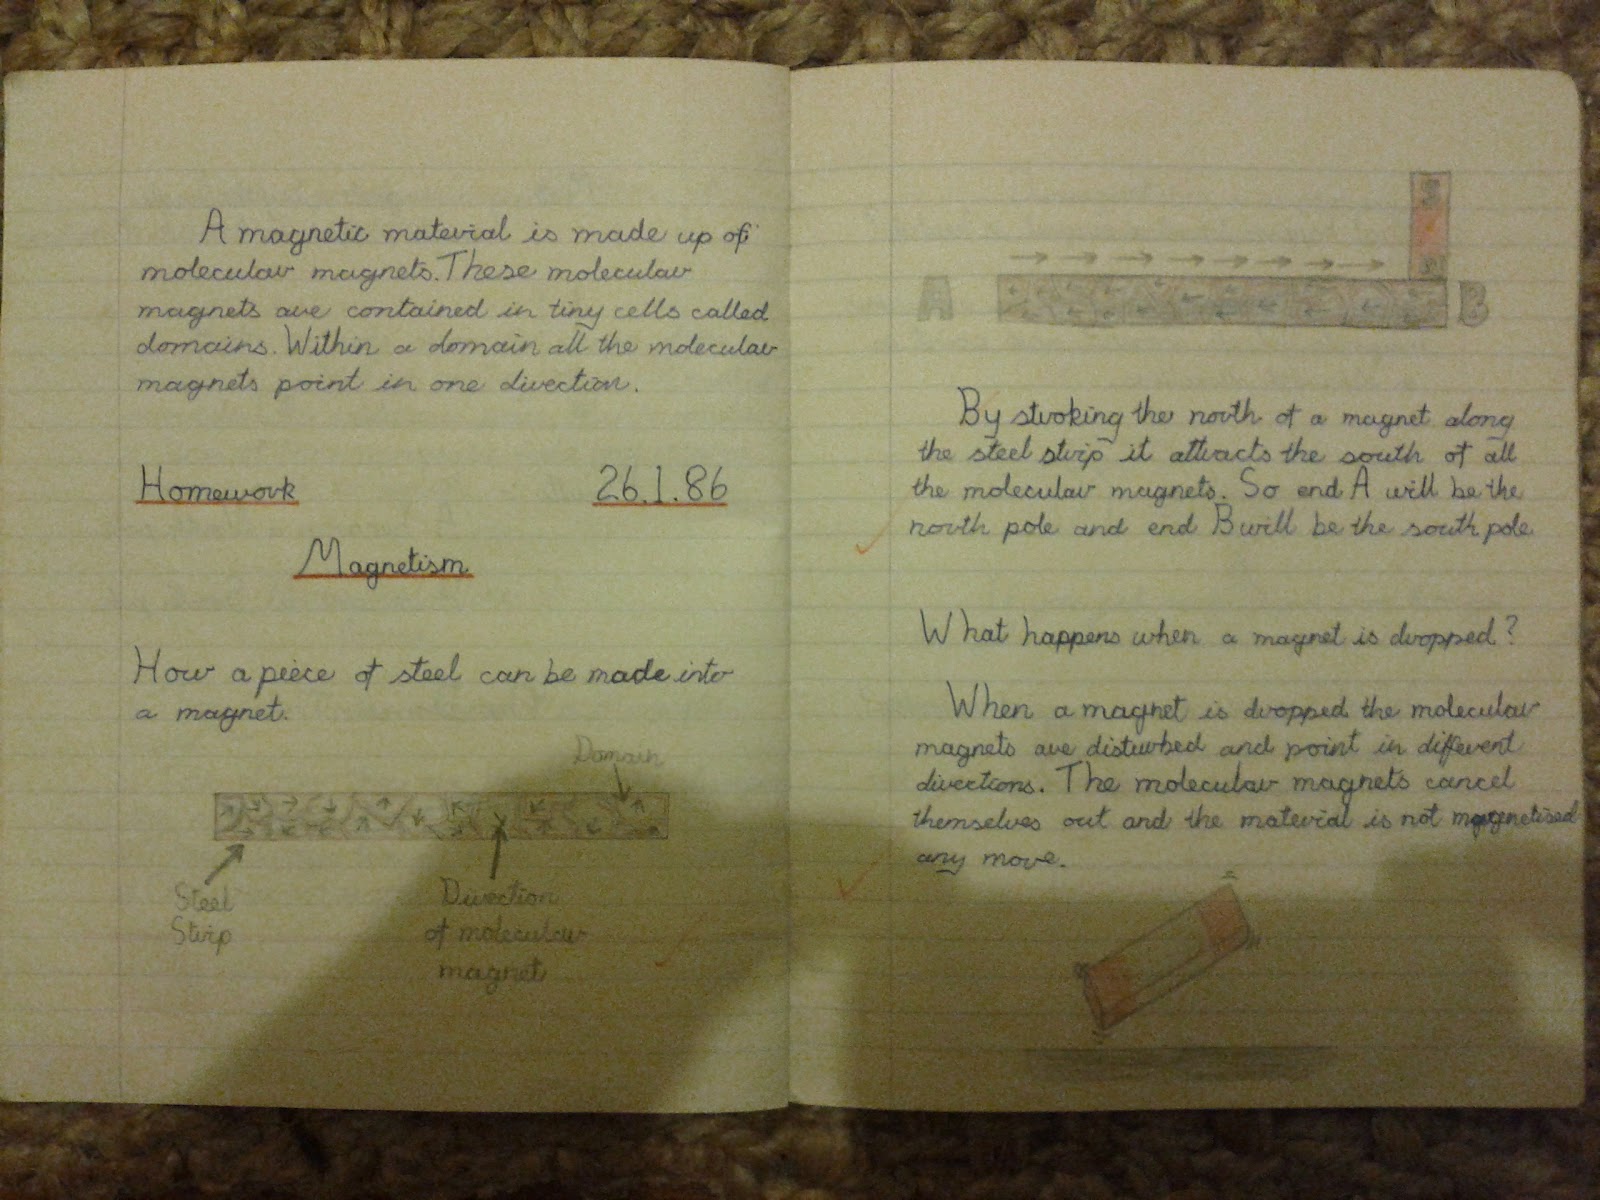 A magnetic material is made up of
molecular magnets. These molecular
magnets are contained in tiny cells called
domains. Within a domain all the molecular
magnets point in one direction.
Homework 26.1.86
Magnetism
How a piece of steel can be made into
a magnet.
Domain
Steel
Strip
Direction
of molecular
magnet
A B
By stroking the north of a magnet along
the steel strip it attracts the south of all
the molecular magnets. So end A will be the
north pole and end B will be the south pole
What happens when a magnet is dropped?
When a magnet is dropped the molecular
magnets are disturbed and point in different
directions. The molecular magnets cancel
themselves out and the material is not magnetised
any more.